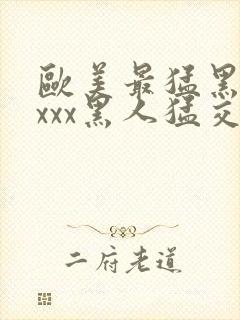 歐美最猛黑
xxx黑人猛交
二府老道